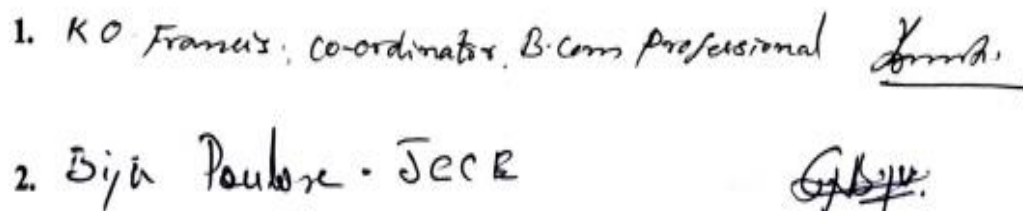 1. K O Francis, co-ordinator, B.Com Professional
2. Biju Poulose - JCCE